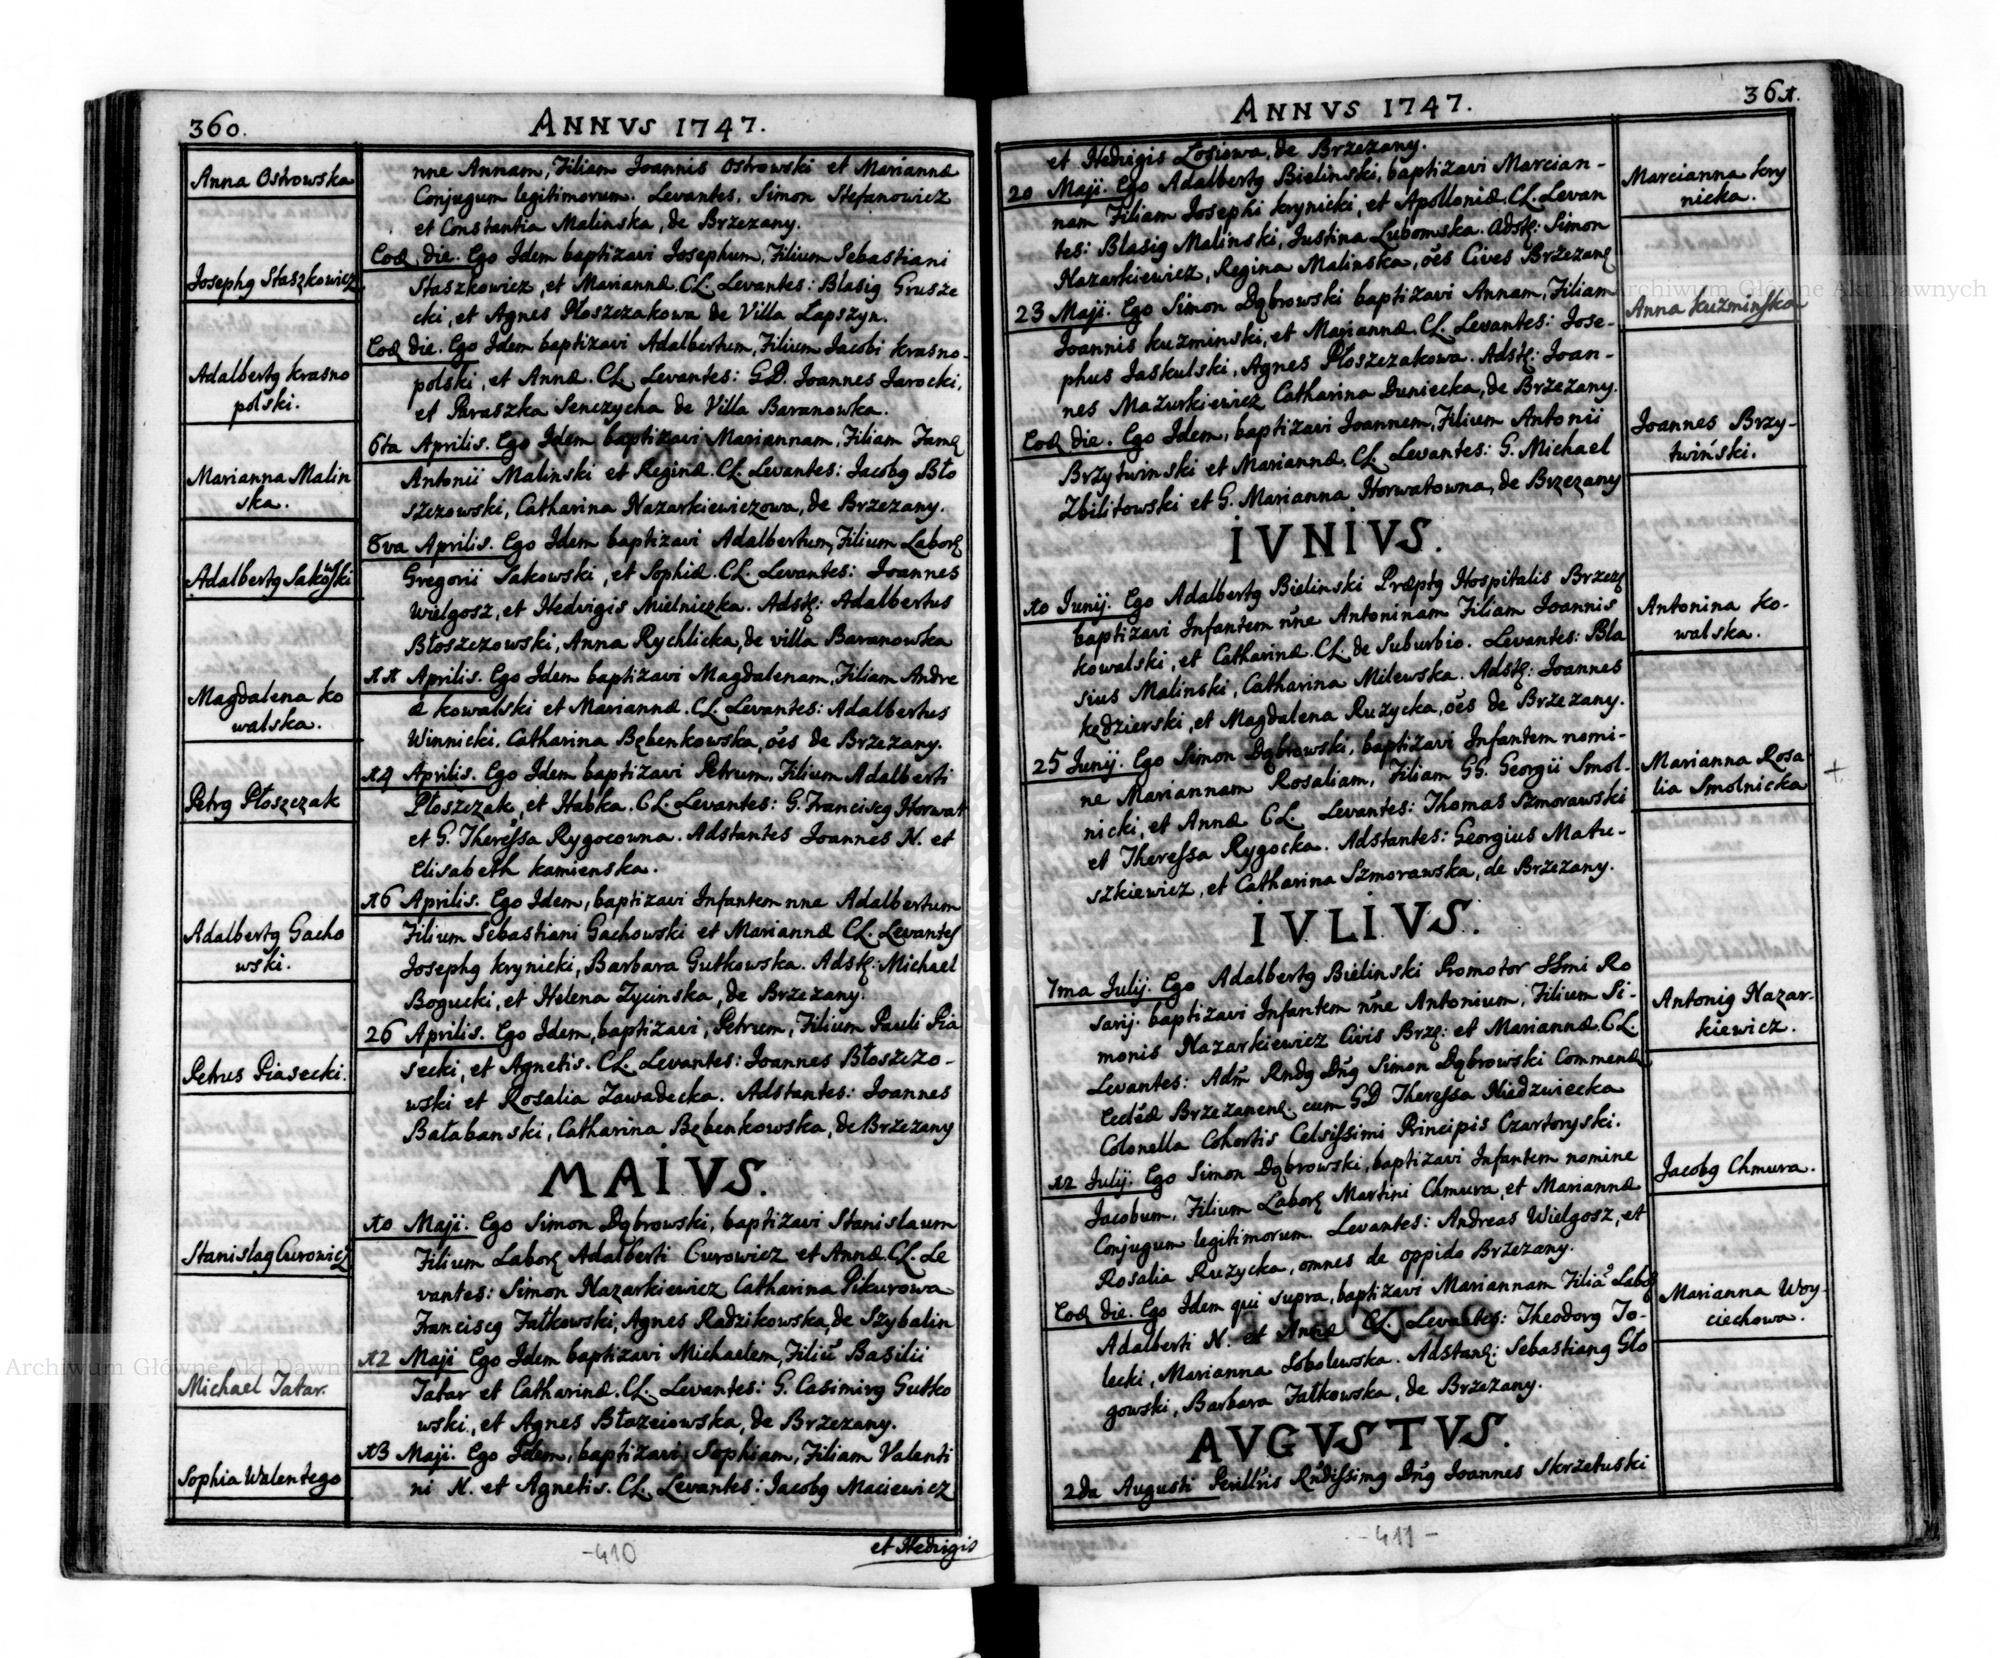 360.
ANNVS 1747.
Anna Ostrowska
Josephg Staszkowicz
Adalbertg Krasno
polski.
Marianna Malin
ska.
Adalbertg Sakowski
Magdalena Ko
walska.
Petrg Płoszczak
Adalbertg Gacho
wski.
Petrus Piasecki.
Stanislag Curowicz
Michael Tatar.
Sophia Walentego
nne Annam, Filiam Joannis Ostrowski et Mariannæ
Conjugum legitimorum. Levantes, Simon Stefanowicz
et Constantia Malinska, de Brzezany.
Eod. die. Ego Idem baptizavi Josephum, Filium Sebastiani
Staszkowicz, et Mariannæ. CL. Levantes: Blasig Grusze
cki, et Agnes Płoszczakowa de Villa Łapszyn.
Eod. die. Ego Idem baptizavi Adalbertum, Filium Jacobi Krasno-
polski, et Annæ. CL. Levantes: GD. Joannes Jarocki,
et Paraszka Senczycha de Villa Baranowka.
6ta Aprilis. Ego Idem baptizavi Mariannam, Filiam Fam.
Antonii Malinski et Reginæ. CL. Levantes: Jacobg Bło
szczowski, Catharina Nazarkiewiczowa, de Brzezany.
8va Aprilis. Ego Idem baptizavi Adalbertum, Filium Labor.
Gregorii Sakowski, et Sophiæ. CL. Levantes: Joannes
Wielgosz, et Hedvigis Mielniczka. Adst.: Adalbertus
Błoszczowski, Anna Rychlicka, de villa Baranowka
11 Aprilis. Ego Idem baptizavi Magdalenam, Filiam Andre
æ Kowalski et Mariannæ. CL. Levantes: Adalbertus
Winnicki, Catharina Bębenkowska, oes de Brzezany.
14 Aprilis. Ego Idem baptizavi Petrum, Filium Adalberti
Płoszczak, et Habka. CL. Levantes: G. Franciscg Horwat
et G. Theressa Rygocowna. Adstantes Joannes N. et
Elisabeth Kamienska.
16 Aprilis. Ego Idem, baptizavi Infantem nne Adalbertum
Filium Sebastiani Gachowski et Mariannæ CL. Levantes
Josephg Krynicki, Barbara Gutkowska. Adst.: Michael
Bogucki, et Helena Zycinska, de Brzezany.
26 Aprilis. Ego Idem, baptizavi, Petrum, Filium Pauli Pia
secki, et Agnetis. CL. Levantes: Joannes Błoszczo-
wski et Rosalia Zawadecka. Adstantes: Joannes
Bałabanski, Catharina Bębenkowska, de Brzezany
MAIVS.
10 Maji. Ego Simon Dąbrowski, baptizavi Stanislaum
Filium Labor. Adalberti Curowicz et Annæ. CL. Le
vantes: Simon Nazarkiewicz Catharina Pikurowa
Franciscg Fałkowski, Agnes Radzikowska, de Szybalin
12 Maji Ego Idem baptizavi Michaelem, Filiu Basilii
Tatar et Catharinæ. CL. Levantes: G. Casimirg Gutko
wski, et Agnes Błazeiowska, de Brzezany.
13 Maji. Ego Idem, baptizavi, Sophiam, Filiam Valenti
ni N. et Agnetis. CL. Levantes: Jacobg Maciewicz
et Hedvigis
-410
361.
ANNVS 1747.
et Hedvigis Łosiowa, de Brzezany.
20 Maji. Ego Adalbertg Bielinski, baptizavi Marcian-
nam Filiam Josephi Krynicki, et Apolloniæ. CL. Levan
tes: Blasig Malinski, Justina Lubomska. Adst.: Simon
Nazarkiewicz, Regina Malinska, oes Cives Brzezan.
23 Maji. Ego Simon Dąbrowski baptizavi Annam, Filiam
Joannis Kuzminski, et Mariannæ. CL. Levantes: Jose-
phus Jaskulski, Agnes Płoszczakowa. Adst.: Joan-
nes Mazurkiewicz Catharina Duniecka, de Brzezany.
Eod. die. Ego Idem, baptizavi Joannem, Filium Antonii
Brzytwinski et Mariannæ. CL. Levantes: G. Michael
Zbilitowski et G. Marianna Horwatowna, de Brzezany
IVNIVS.
10 Junij. Ego Adalbertg Bielinski Præptg Hospitalis Brzez.
baptizavi Infantem nne Antoninam Filiam Joannis
Kowalski, et Catharinæ. CL. de Suburbio. Levantes: Bla
sius Malinski, Catharina Milewska. Adst.: Joannes
Kędzierski, et Magdalena Ruzycka, oes de Brzezany.
25 Junij. Ego Simon Dąbrowski, baptizavi Infantem nomi-
ne Mariannam Rosaliam, Filiam GG. Georgii Smol-
nicki, et Annæ CL. Levantes: Thomas Szmorawski
et Theressa Rygocka. Adstantes: Georgius Matu-
szkiewicz, et Catharina Szmorawska, de Brzezany.
IVLIVS.
7ma Julij. Ego Adalbertg Bielinski Promotor SSmi Ro
sarij. baptizavi Infantem nne Antonium, Filium Si-
monis Nazarkiewicz Civis Brz.: et Mariannæ. CL.
Levantes: Adm Rndg Dng Simon Dąbrowski Commend.
Eccleæ Brzezanen. cum GD Theressa Niedzwiecka
Colonella Cohortis Celsissimi Principis Czartoryski.
12 Julij. Ego Simon Dąbrowski, baptizavi Infantem nomine
Jacobum, Filium Labor. Martini Chmura, et Mariannæ
Conjugum legitimorum. Levantes: Andreas Wielgosz, et
Rosalia Ruzycka, omnes de oppido Brzezany.
Eod. die. Ego Idem qui supra, baptizavi Mariannam Filia Labor.
Adalberti N. et Annæ CL. Levantes: Theodorg To-
lecki, Marianna Sobolewska. Adstan.: Sebastiang Gło
gowski, Barbara Fałkowska, de Brzezany.
AVGVSTVS.
2da Augusti Perillris Rndissimg Dng Joannes Skrzetuski
Marcianna Kry
nicka.
Anna Kuzminska
Joannes Brzy-
twiński.
Antonina Ko-
walska.
Marianna Rosa
lia Smolnicka
+
Antonig Nazar-
kiewicz.
Jacobg Chmura.
Marianna Woy-
ciechowa.
-411-
Archiwum Główne Akt Dawnych
Archiwum Główne Akt Dawnych